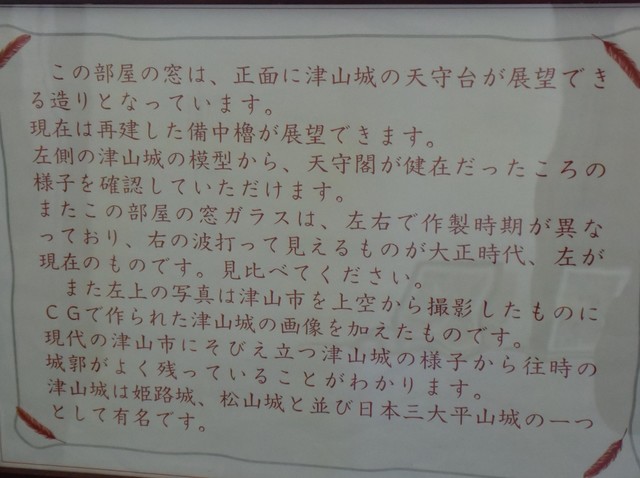 この部屋の窓は、正面に津山城の天守台が展望でき
る造りとなっています。
現在は再建した備中櫓が展望できます。
左側の津山城の模型から、天守閣が健在だったころの
様子を確認していただけます。
またこの部屋の窓ガラスは、左右で作製時期が異な
っており、右の波打って見えるものが大正時代、左が
現在のものです。見比べてください。
また左上の写真は津山市を上空から撮影したものに
ＣＧで作られた津山城の画像を加えたものです。
現代の津山市にそびえ立つ津山城の様子から往時の
城郭がよく残っていることがわかります。
津山城は姫路城、松山城と並び日本三大平山城の一つ
として有名です。